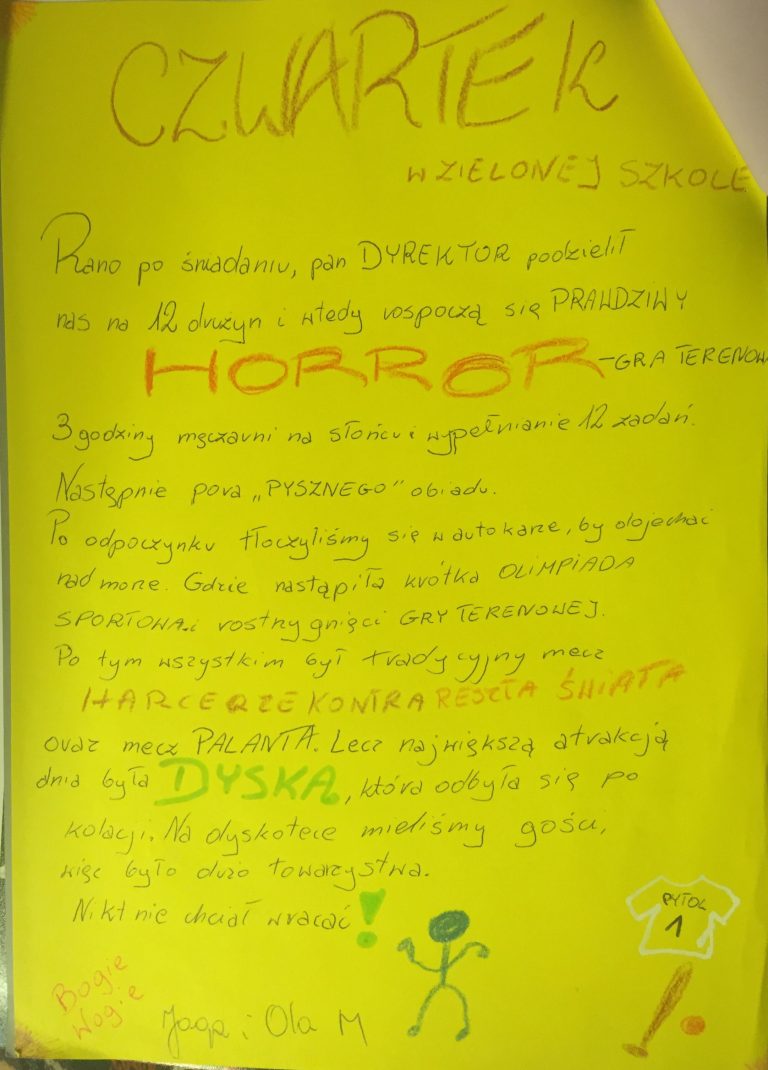 CZWARTEK
W ZIELONEJ SZKOLE
Rano po śniadaniu, pan DYREKTOR podzielił
nas na 12 drużyn i wtedy rospoczą się PRAWDZIWY
HORROR - GRA TERENOWA
3 godziny męczarni na słońcu i wypełnianie 12 zadań.
Następnie pora „PYSZNEGO” obiadu.
Po odpoczynku tłoczyliśmy się w autokarze, by dojechać
nad morze. Gdzie nastąpiła krótka OLIMPIADA
SPORTOWA i rostrzygnięci GRY TERENOWEJ.
Po tym wszystkim był tradycyjny mecz
HARCERZE KONTRA RESZTA ŚWIATA
oraz mecz PALANTA. Lecz największą atrakcją
dnia była DYSKA, która odbyła się po
kolacji. Na dyskotece mieliśmy gości,
więc było dużo towarzystwa.
Nikt nie chciał wracać!
PYTOL
1
Bogie
Wogie
Jaga i Ola M